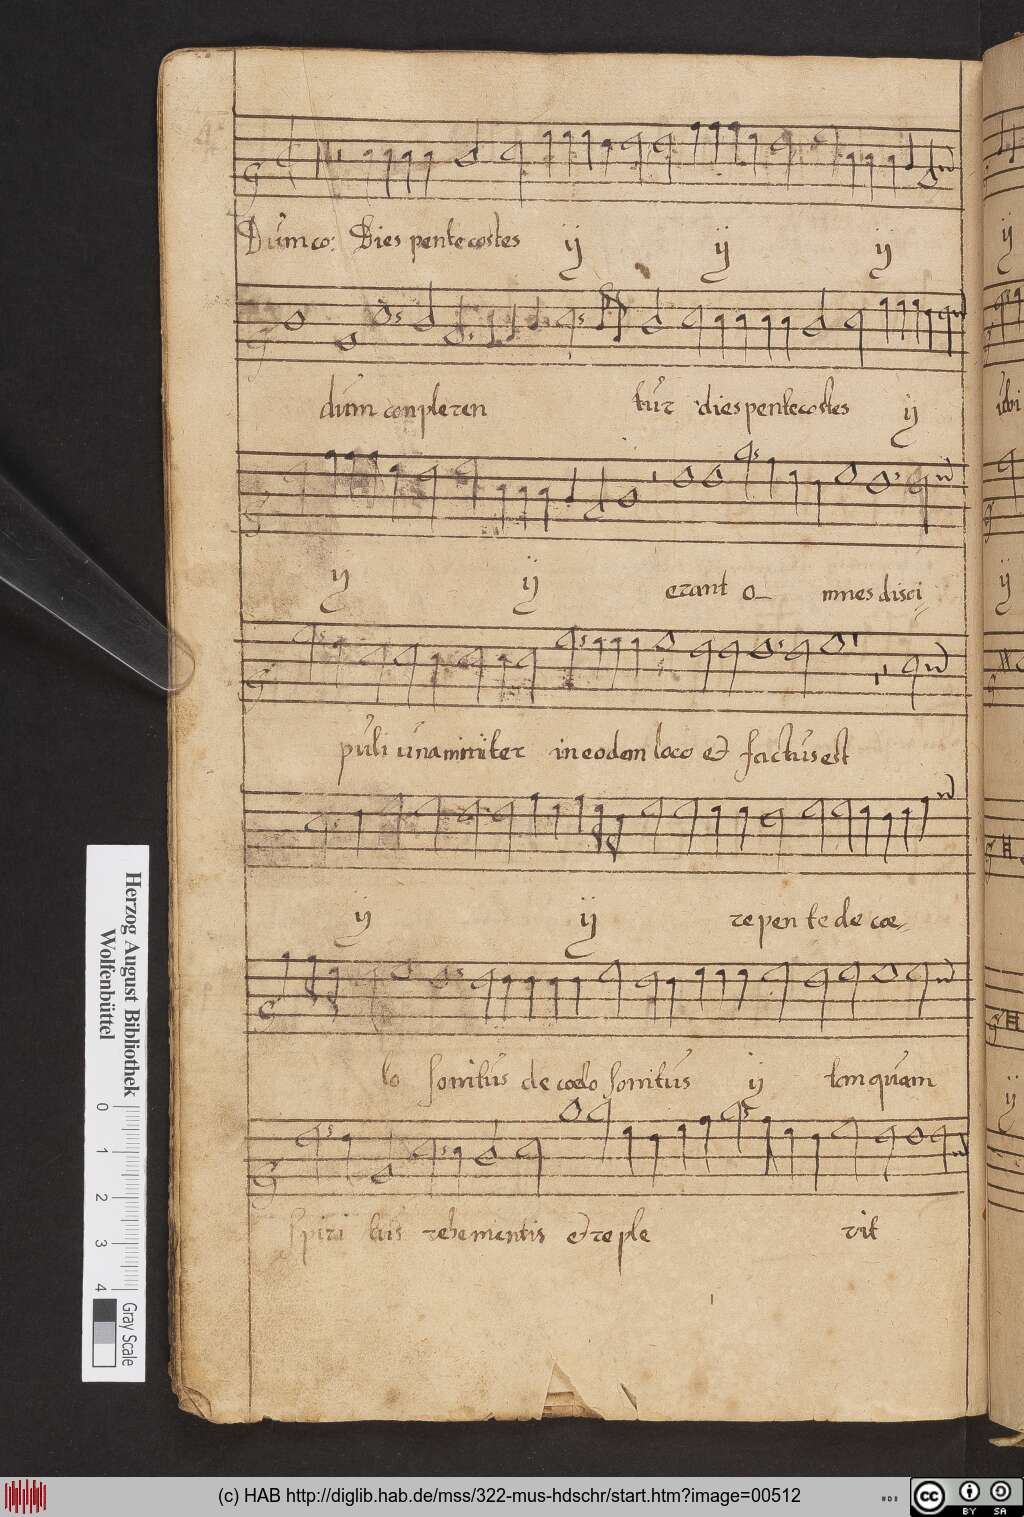 Dum co: Dies pentecostes ij ij ij
dum conpleren tur dies pentecostes ij
ij ij erant o_ mnes disci_
puli unanimiter in eodem loco et factus est
ij ij repente de coe_
lo sonitus de coelo sonitus ij tamquam
spiri tus vehementis et reple vit
ij
ubi
ij
ij
Herzog August Bibliothek
Wolfenbüttel
0 1 2 3 4
Gray Scale
(c) HAB http://diglib.hab.de/mss/322-mus-hdschr/start.htm?image=00512
cc BY SA